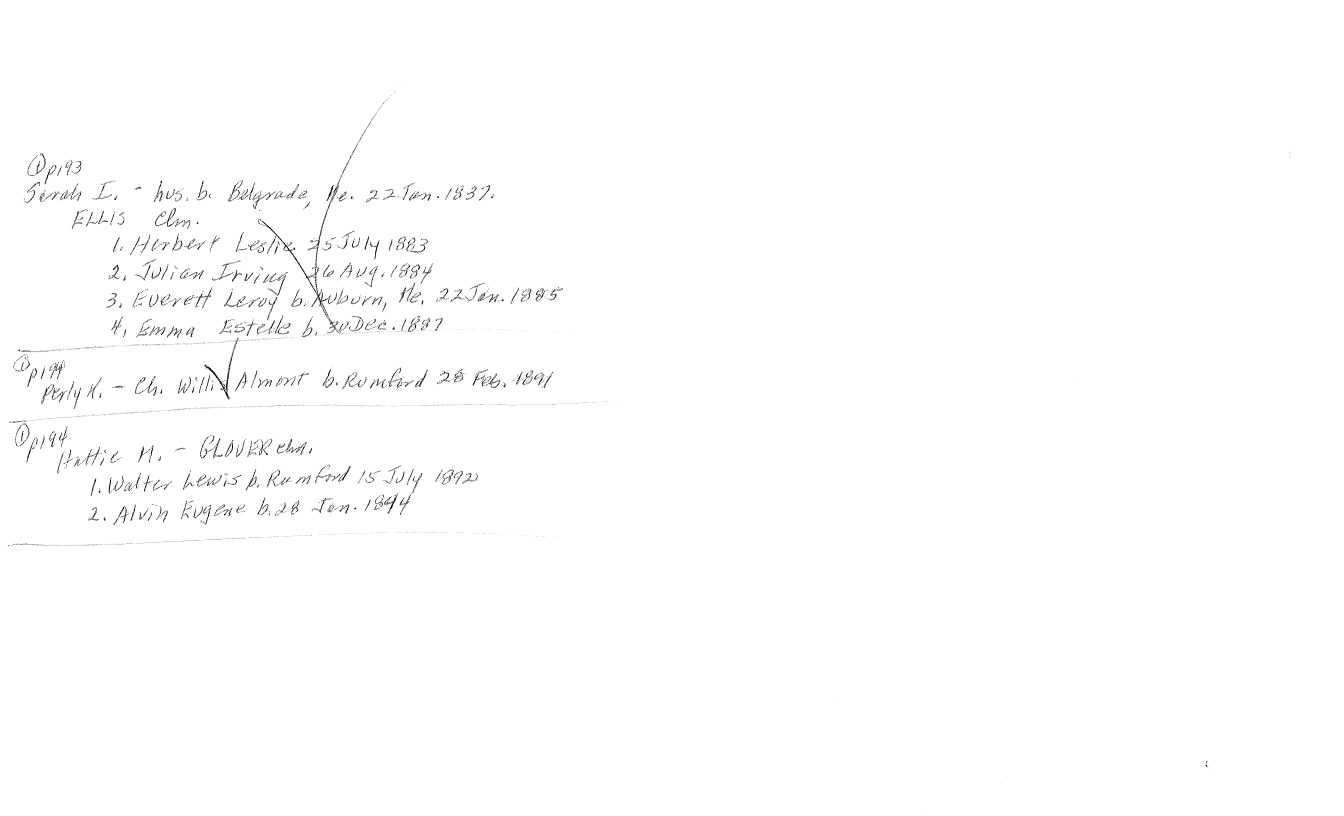 ① p193
Sarah I. - hus. b. Belgrade, Me. 22 Jan. 1837.
ELLIS chn.
1. Herbert Leslie 25 July 1883
2. Julian Irving 26 Aug. 1884
3. Everett Leroy b. Auburn, Me. 22 Jan. 1885
4. Emma Estelle b. 30 Dec. 1887
① p194
Perly K. - Ch. Willis Almont b. Rumford 28 Feb. 1891
① p194
Hattie M. - GLOVER chn.
1. Walter Lewis b. Rumford 15 July 1892
2. Alvin Eugene b. 28 Jan. 1894